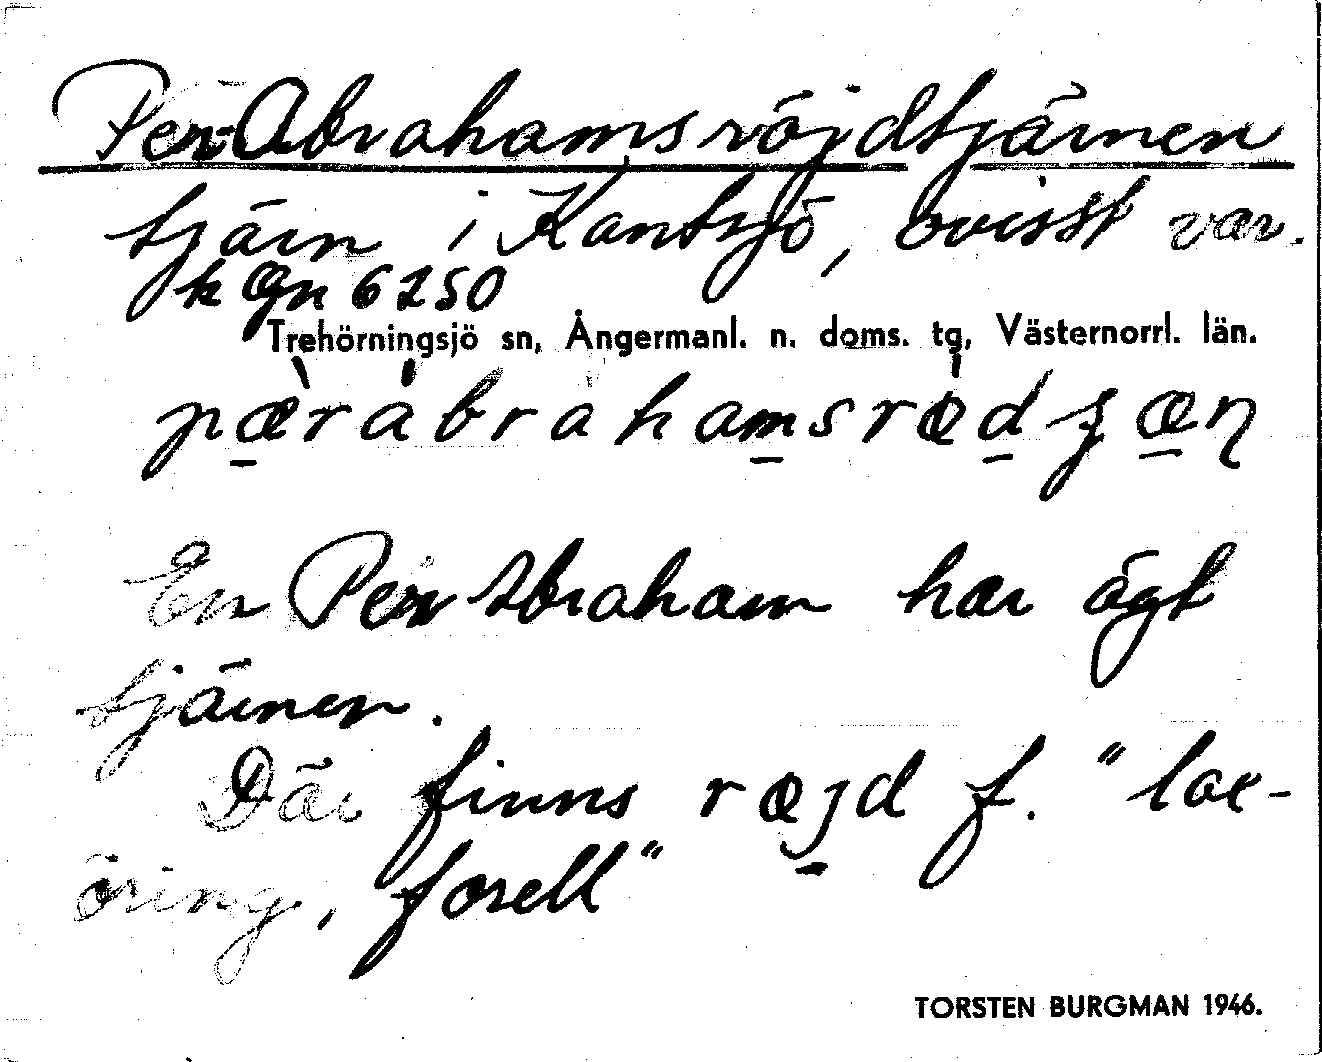 Per-Abrahamsröjdtjärnen
tjärn i Kantsjö, ovisst var.
k Gn 6250
Trehörningsjö sn, Ångermanl. n. doms. tg, Västernorrl. län.
pæ̀rábrahamsrø̀dʒæɳ
En Per Abraham har ägt
tjärnen.
Där finns røjd f. "lax-
öring, forell"
TORSTEN BURGMAN 1946.